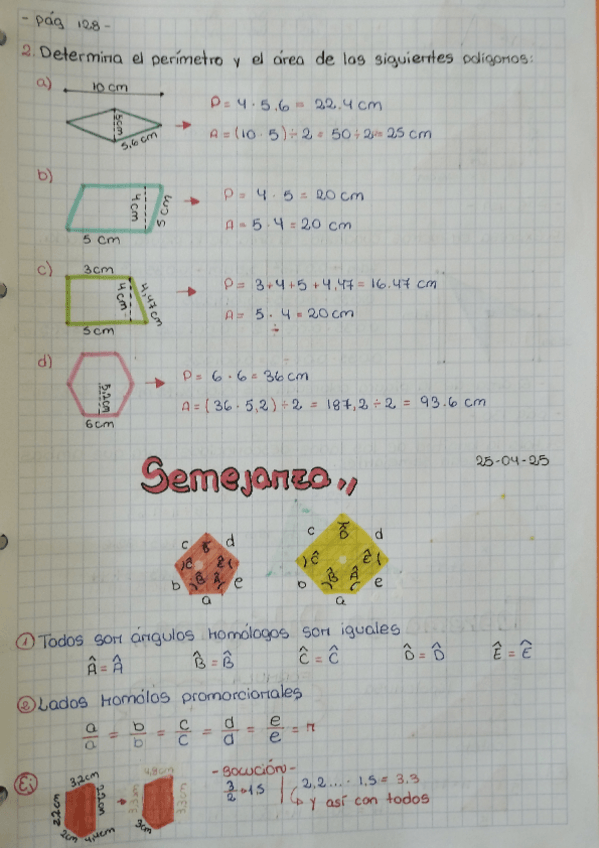 - pág 128 -
2. Determina el perímetro y el área de los siguientes polígonos:
a) 10 cm
5cm
5,6cm
P = 4 · 5,6 = 22,4 cm
A = (10 · 5) ÷ 2 = 50 ÷ 2 = 25 cm
b)
4cm
5cm
5 cm
P = 4 · 5 = 20 cm
A = 5 · 4 = 20 cm
c) 3cm
4cm
4,47cm
5cm
P = 3 + 4 + 5 + 4,47 = 16.47 cm
A = 5 · 4 = 20cm
÷
d)
5,2cm
6cm
P = 6 · 6 = 36 cm
A = (36 · 5,2) ÷ 2 = 187,2 ÷ 2 = 93.6 cm
Semejanza,,
25-04-25
c d
Ĉ Ê
B̂ Â
b e
a
c D̂ d
Ĉ Ê
B̂ Â
b e
a
① Todos son ángulos homólogos son iguales
Â = Â B̂ = B̂ Ĉ = Ĉ D̂ = D̂ Ê = Ê
② Lados homólos promorcionales
a/a = b/b = c/c = d/d = e/e = r
Ej
3,2cm
2,2cm
2,2cm
2cm
4,4cm
4,8cm
3,3cm
3,3cm
3cm
- Solución -
3/2 = 1,5
2,2... · 1,5 = 3,3
↳ y así con todos